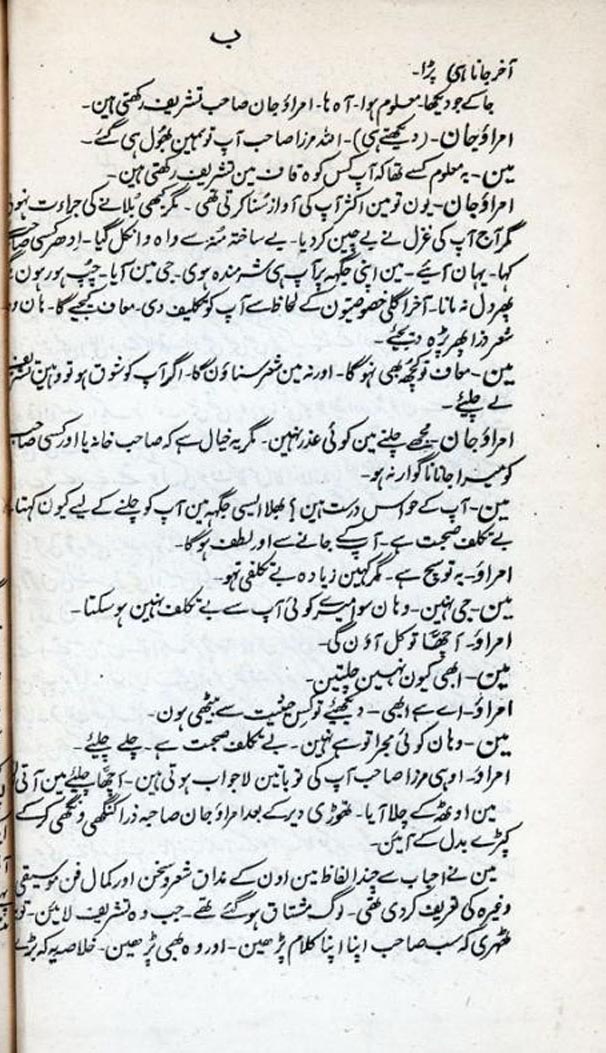 ب
آخر جانا ہی پڑا۔
جا کے جو دیکھا۔ معلوم ہوا۔ آہ ہا۔ امراؤ جان صاحب تشریف رکھتی ہین۔
امراؤ جان۔ (دیکھتے ہی)۔ اللہ مرزا صاحب آپ تو ہمین بھول ہی گئے۔
مین۔ یہ معلوم کسے تھا کہ آپ کس کوہ قاف مین تشریف رکھتی ہین۔
امراؤ جان۔ یون تو مین اکثر آپ کی آواز سُنا کرتی تھی۔ مگر کبھی بُلانے کی جراءت نہوئی
مگر آج آپ کی غزل نے بے چین کر دیا۔ بے ساختہ مُنہ سے واہ وا نکل گیا۔ اِدھر کسی صاحب
کہا۔ یہان آئیے۔ مین اپنی جگہہ پر آپ ہی شرمندہ ہوی۔ جی مین آیا۔ چُپ ہو رہون
پھر دل نہ مانا۔ آخر اگلی خصوصیتون کے لحاظ سے آپ کو تکلیف دی۔ معاف کیجیے گا۔ ہان وہ
شعر ذرا پھر پڑہ دیجئے۔
مین۔ معاف تو کچھ بھی نہوگا۔ اور نہ مین شعر سناؤن گا۔ اگر آپ کو شوق ہو تو وہین تشریف
لے چلئے۔
امراؤ جان۔ مجھے چلنے مین کوئی عذر نہین۔ مگر یہ خیال ہے کہ صاحب خانہ یا اور کسی صاحب
کو میرا جانا ناگوار نہ ہو۔
مین۔ آپ کے حواس درست ہین! بھلا ایسی جگہہ مین آپ کو چلنے کے لیے کیون کہتا۔
بے تکلف صحبت ہے۔ آپ کے جانے سے اور لطف ہوگا۔
امراؤ۔ یہ تو سچ ہے۔ مگر کہین زیادہ بے تکلفی نہو۔
مین۔ جی نہین۔ وہان سوا میرے کوئی آپ سے بے تکلف نہین ہو سکتا۔
امراؤ۔ اچھا تو کل آؤن گی۔
مین۔ ابھی کیون نہین چلتین۔
امراؤ۔ اے ہے ابھی۔ دیکھئے تو کس حیثیت سے بیٹھی ہون۔
مین۔ وہان کوئی مجرا تو ہے نہین۔ بے تکلف صحبت ہے۔ چلے چلیئے۔
امراؤ۔ اوہی مرزا صاحب آپ کی تو باتین لاجواب ہوتی ہین۔ اچھا چلئے مین آتی
مین اوٹھ کے چلا آیا۔ تھوڑی دیر کے بعد امراؤ جان صاحبہ ذرا کنگھی ونگھی کر کے
کپڑے بدل کے آئین۔
مین نے احباب سے چند الفاظ مین اون کے مذاق شعر و سخن اور کمال فن موسیقی
وغیرہ کی تعریف کر دی تھی۔ لوگ مشتاق ہو گئے تھے۔ جب وہ تشریف لائین۔ تو
ٹھہری کہ سب صاحب اپنا اپنا کلام پڑھین۔ اور وہ بھی پڑھین۔ خلاصہ یہ کہ بڑے